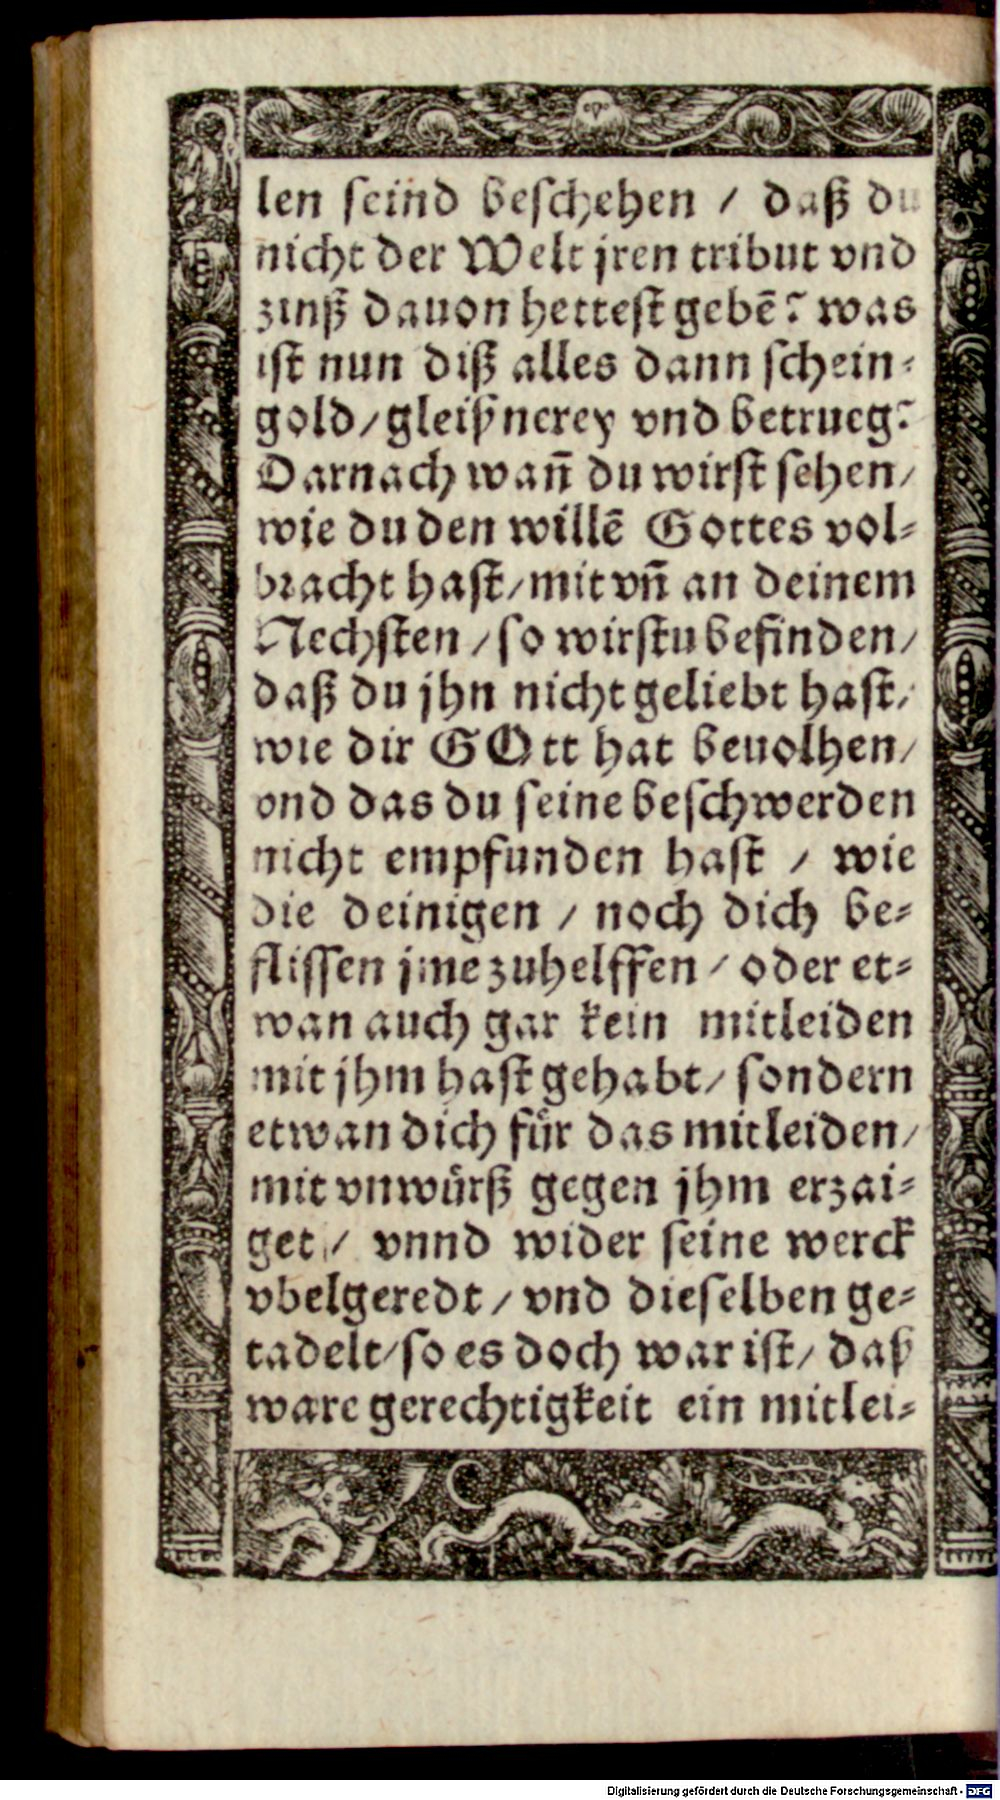 len seind beschehen / daß du
nicht der Welt jren tribut vnd
zinß dauon hettest gebē? was
ist nun diß alles dann schein-
gold/gleißnerey vnd betrueg?
Darnach wañ du wirst sehen/
wie du den willē Gottes vol-
bracht hast/mit vñ an deinem
Nechsten /so wirstu befinden/
daß du jhn nicht geliebt hast/
wie dir GOtt hat beuolhen/
vnd das du seine beschwerden
nicht empfunden hast / wie
die deinigen / noch dich be-
flissen jme zuhelffen / oder et-
wan auch gar kein mitleiden
mit jhm hast gehabt/ sondern
etwan dich für das mitleiden/
mit vnwürß gegen jhm erzai-
get / vnnd wider seine werck
vbelgeredt / vnd dieselben ge-
tadelt/so es doch war ist/ daß
ware gerechtigkeit ein mitlei-
Digitalisierung gefördert durch die Deutsche Forschungsgemeinschaft - DFG